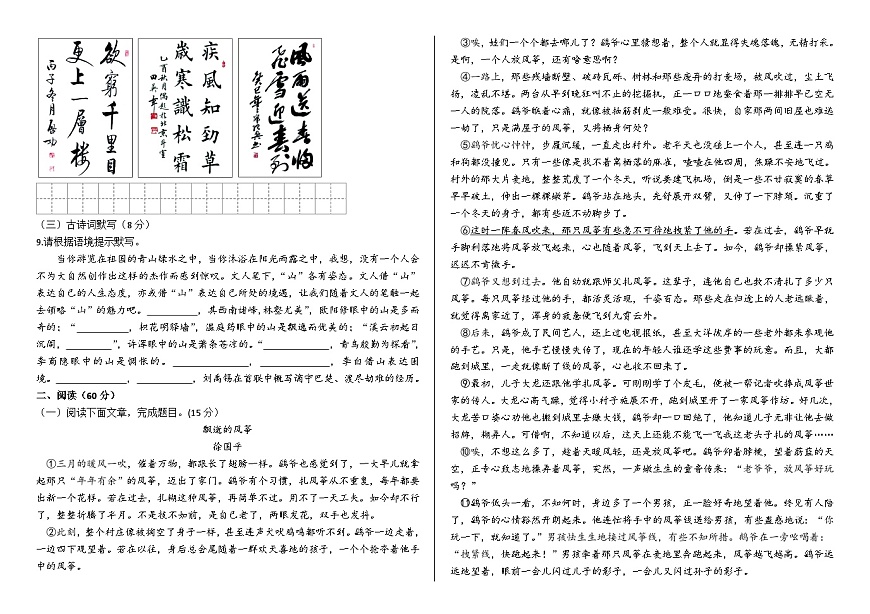 欲窮千里目
更上一層樓
丙子冬月啟功
疾風知勁草
歲寒識松霜
風雨送春歸
飛雪迎春到
（三）古诗词默写（8分）
9.请根据语境提示默写。
当你游览在祖国的青山绿水之中，当你沐浴在阳光雨露之中，我想，没有一个人会
不为大自然创作出这样的杰作而感到惊叹。文人笔下，“山”各有姿态。文人借“山”
表达自己的人生态度，亦或借“山”表达自己所处的境遇，让我们随着文人的笔触一起
去领略“山”的魅力吧。__________，其西南诸峰，林壑尤美”，欧阳修眼中的山是多而
奇的；“__________，枳花明驿墙”，温庭筠眼中的山是飘逸而优美的；“溪云初起日
沉阁，__________”，许浑眼中的山是萧条苍凉的。“__________，青鸟殷勤为探看”，
李商隐眼中的山是惆怅的。__________，__________，李白借山表达困
境。__________，__________，刘禹锡在首联中概写谪守巴楚、渡尽劫难的经历。
二、阅读（60分）
（一）阅读下面文章，完成题目。（15分）
飘逝的风筝
徐国平
①三月的暖风一吹，催着万物，都跟长了翅膀一样。鹞爷也感觉到了，一大早儿就拿
起那只“年年有余”的风筝，迈出了家门。鹞爷有个习惯，扎风筝从不重复，每年都要
出新一个花样。若在过去，扎糊这种风筝，再简单不过。用不了一天工夫。如今却不行
了，整整折腾了半月。不是技不如前，是自己老了，两眼发花，双手也发抖。
②此刻，整个村庄像被掏空了身子一样，甚至连声犬吠鸡鸣都听不到。鹞爷一边走着，
一边四下观望着。若在以往，身后总会尾随着一群欢天喜地的孩子，一个个抢夺着他手
中的风筝。
③唉，娃们一个个都去哪儿了？鹞爷心里猜想着，整个人就显得失魂落魄，无精打采。
是啊，一个人放风筝，还有啥意思啊？
④一路上，那些残墙断壁、破砖瓦砾、树林和那些废弃的打麦场，被风吹过，尘土飞
扬，凌乱不堪。两台从早到晚狂叫不止的挖掘机，正一口口地蚕食着那一排排早已空无
一人的院落。鹞爷瞅着心痛，就像被抽筋剥皮一般难受。很快，自家那两间旧屋也难逃
一劫了，只是满屋子的风筝，又将栖身何处？
⑤鹞爷忧心忡忡，步履沉缓，一直走出村外。老半天也没碰上一个人，甚至连一只鸡
和狗都没撞见。只有一些像是找不着窝栖落的麻雀，喳喳在他四周，焦躁不安地飞过。
村外的那大片麦地，整整荒废了一个冬天，听说要建飞机场，倒是一些不甘寂寞的春草
早早破土，伸出一棵棵嫩芽。鹞爷站在地头，先舒展开双臂，又伸了一下脖颈。沉重了
一个冬天的身子，都有些迈不动脚步了。
⑥这时一阵春风吹来，那只风筝有些急不可待地拽紧了他的手。若在过去，鹞爷早就
手脚利落地将风筝放飞起来，心也随着风筝，飞到天上去了。如今，鹞爷却攥紧风筝，
迟迟不肯撒手。
⑦鹞爷又想到过去。他自幼就跟师父扎风筝。这辈子，连他自己也数不清扎了多少只
风筝。每只风筝经过他的手，都活灵活现，千姿百态。那些走在归途上的人老远瞅着，
就觉得离家近了，浑身的疲惫便飞到九霄云外。
⑧后来，鹞爷成了民间艺人，还上过电视报纸，甚至大洋彼岸的一些老外都来参观他
的手艺。只是，他手艺慢慢失传了，现在的年轻人谁还学这些费事的玩意。而且，大都
跑到城里，一走就像断了线的风筝，心也收不回来了。
⑨最初，儿子大龙还跟他学扎风筝。可刚刚学了个皮毛，便被一帮记者吹捧成风筝世
家的传人。大龙心高气躁，觉得小村子施展不开，跑到城里开了一家风筝作坊。好几次，
大龙苦口婆心劝他也搬到城里去赚大钱，鹞爷却一口回绝了，他知道儿子无非让他去做
招牌，糊弄人。可惜啊，不知道以后，这天上还能不能飞一飞我这老头子扎的风筝……
⑩唉，不想这么多了，趁着天暖风轻，还是放风筝吧。鹞爷仰着脖梗，望着蔚蓝的天
空，正专心致志地操弄着风筝，突然，一声嫩生生的童音传来：“老爷爷，放风筝好玩
吗？”
⑪鹞爷低头一看，不知何时，身边多了一个男孩，正一脸好奇地望着他。终见有人陪
了，鹞爷的心情豁然开朗起来。他连忙将手中的风筝线递给男孩，有些蛊惑地说：“你
玩一下，就知道了。”男孩怯生生地接过风筝线，有些不知所措。鹞爷在一旁吆喝着：
“拽紧线，快跑起来！”男孩牵着那只风筝在麦地里奔跑起来，风筝越飞越高。鹞爷远
远地望着，眼前一会儿闪过儿子的影子，一会儿又闪过孙子的影子。